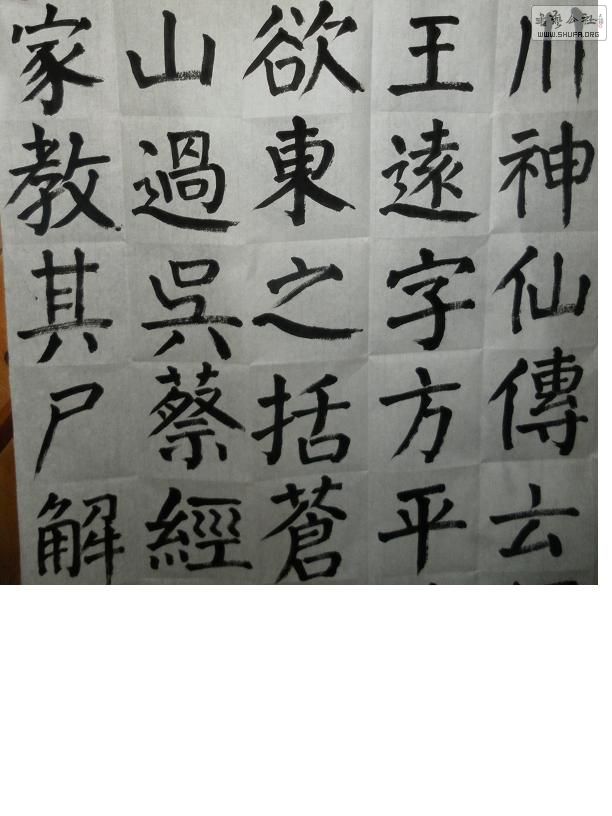 川神仙傳云
王遠字方平
欲東之括蒼
山過吳蔡經
家教其尸解
書藝公社
WWW.SHUFA.ORG